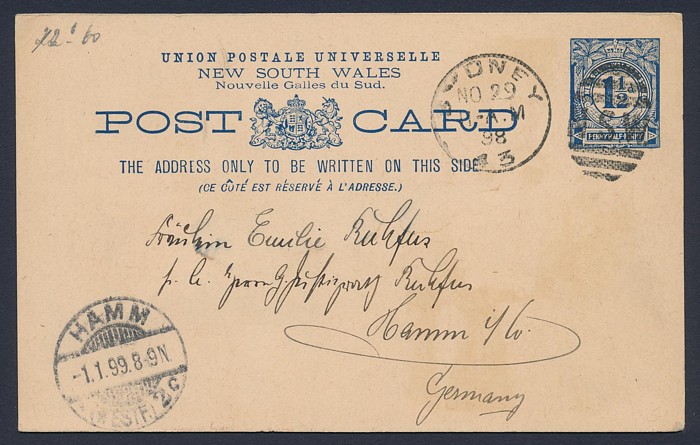 UNION POSTALE UNIVERSELLE
NEW SOUTH WALES
Nouvelle Galles du Sud.
POST CARD
THE ADDRESS ONLY TO BE WRITTEN ON THIS SIDE
(CE CÔTÉ EST RÉSERVÉ À L'ADRESSE.)
SYDNEY
NO 29
A.M
98
33
1½
PENNY HALF-PENNY
Fräulein Emilie
Justizrath
Hamm i/W.
Germany
HAMM
-1.1.99.8-9N.
(WESTF.) 2c